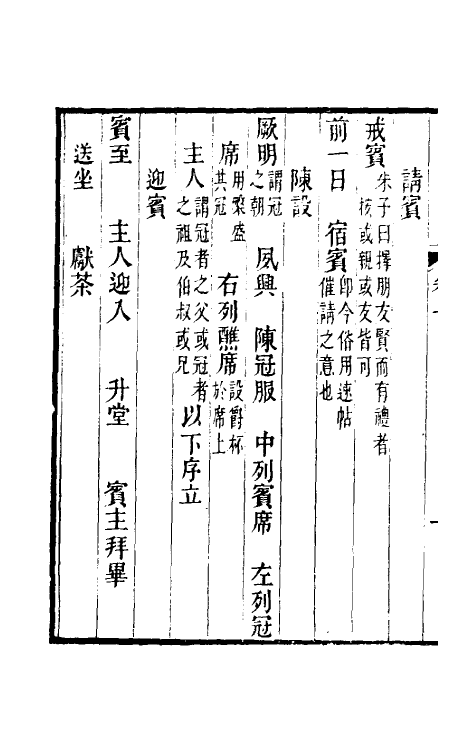 請賓
戒賓 朱子曰擇朋友賢而有禮者按或親或友皆可
前一日 宿賓 即今俗用速帖催請之意也
陳設
厥明 謂冠之朝 夙興 陳冠服 中列賓席 左列冠
席 用槃盛其冠 右列醮席 設爵杯於席上
主人 謂冠者之父或冠者之祖及伯叔或兄 以下序立
迎賓
賓至 主人迎入 升堂 賓主拜畢
送坐 獻茶